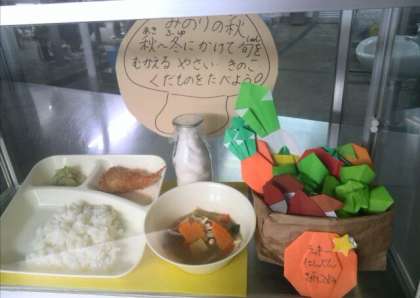 みのりの秋
あき ふゆ しゅん
秋〜冬にかけて旬を
むかえる やさい きのこ
くだものをたべよう